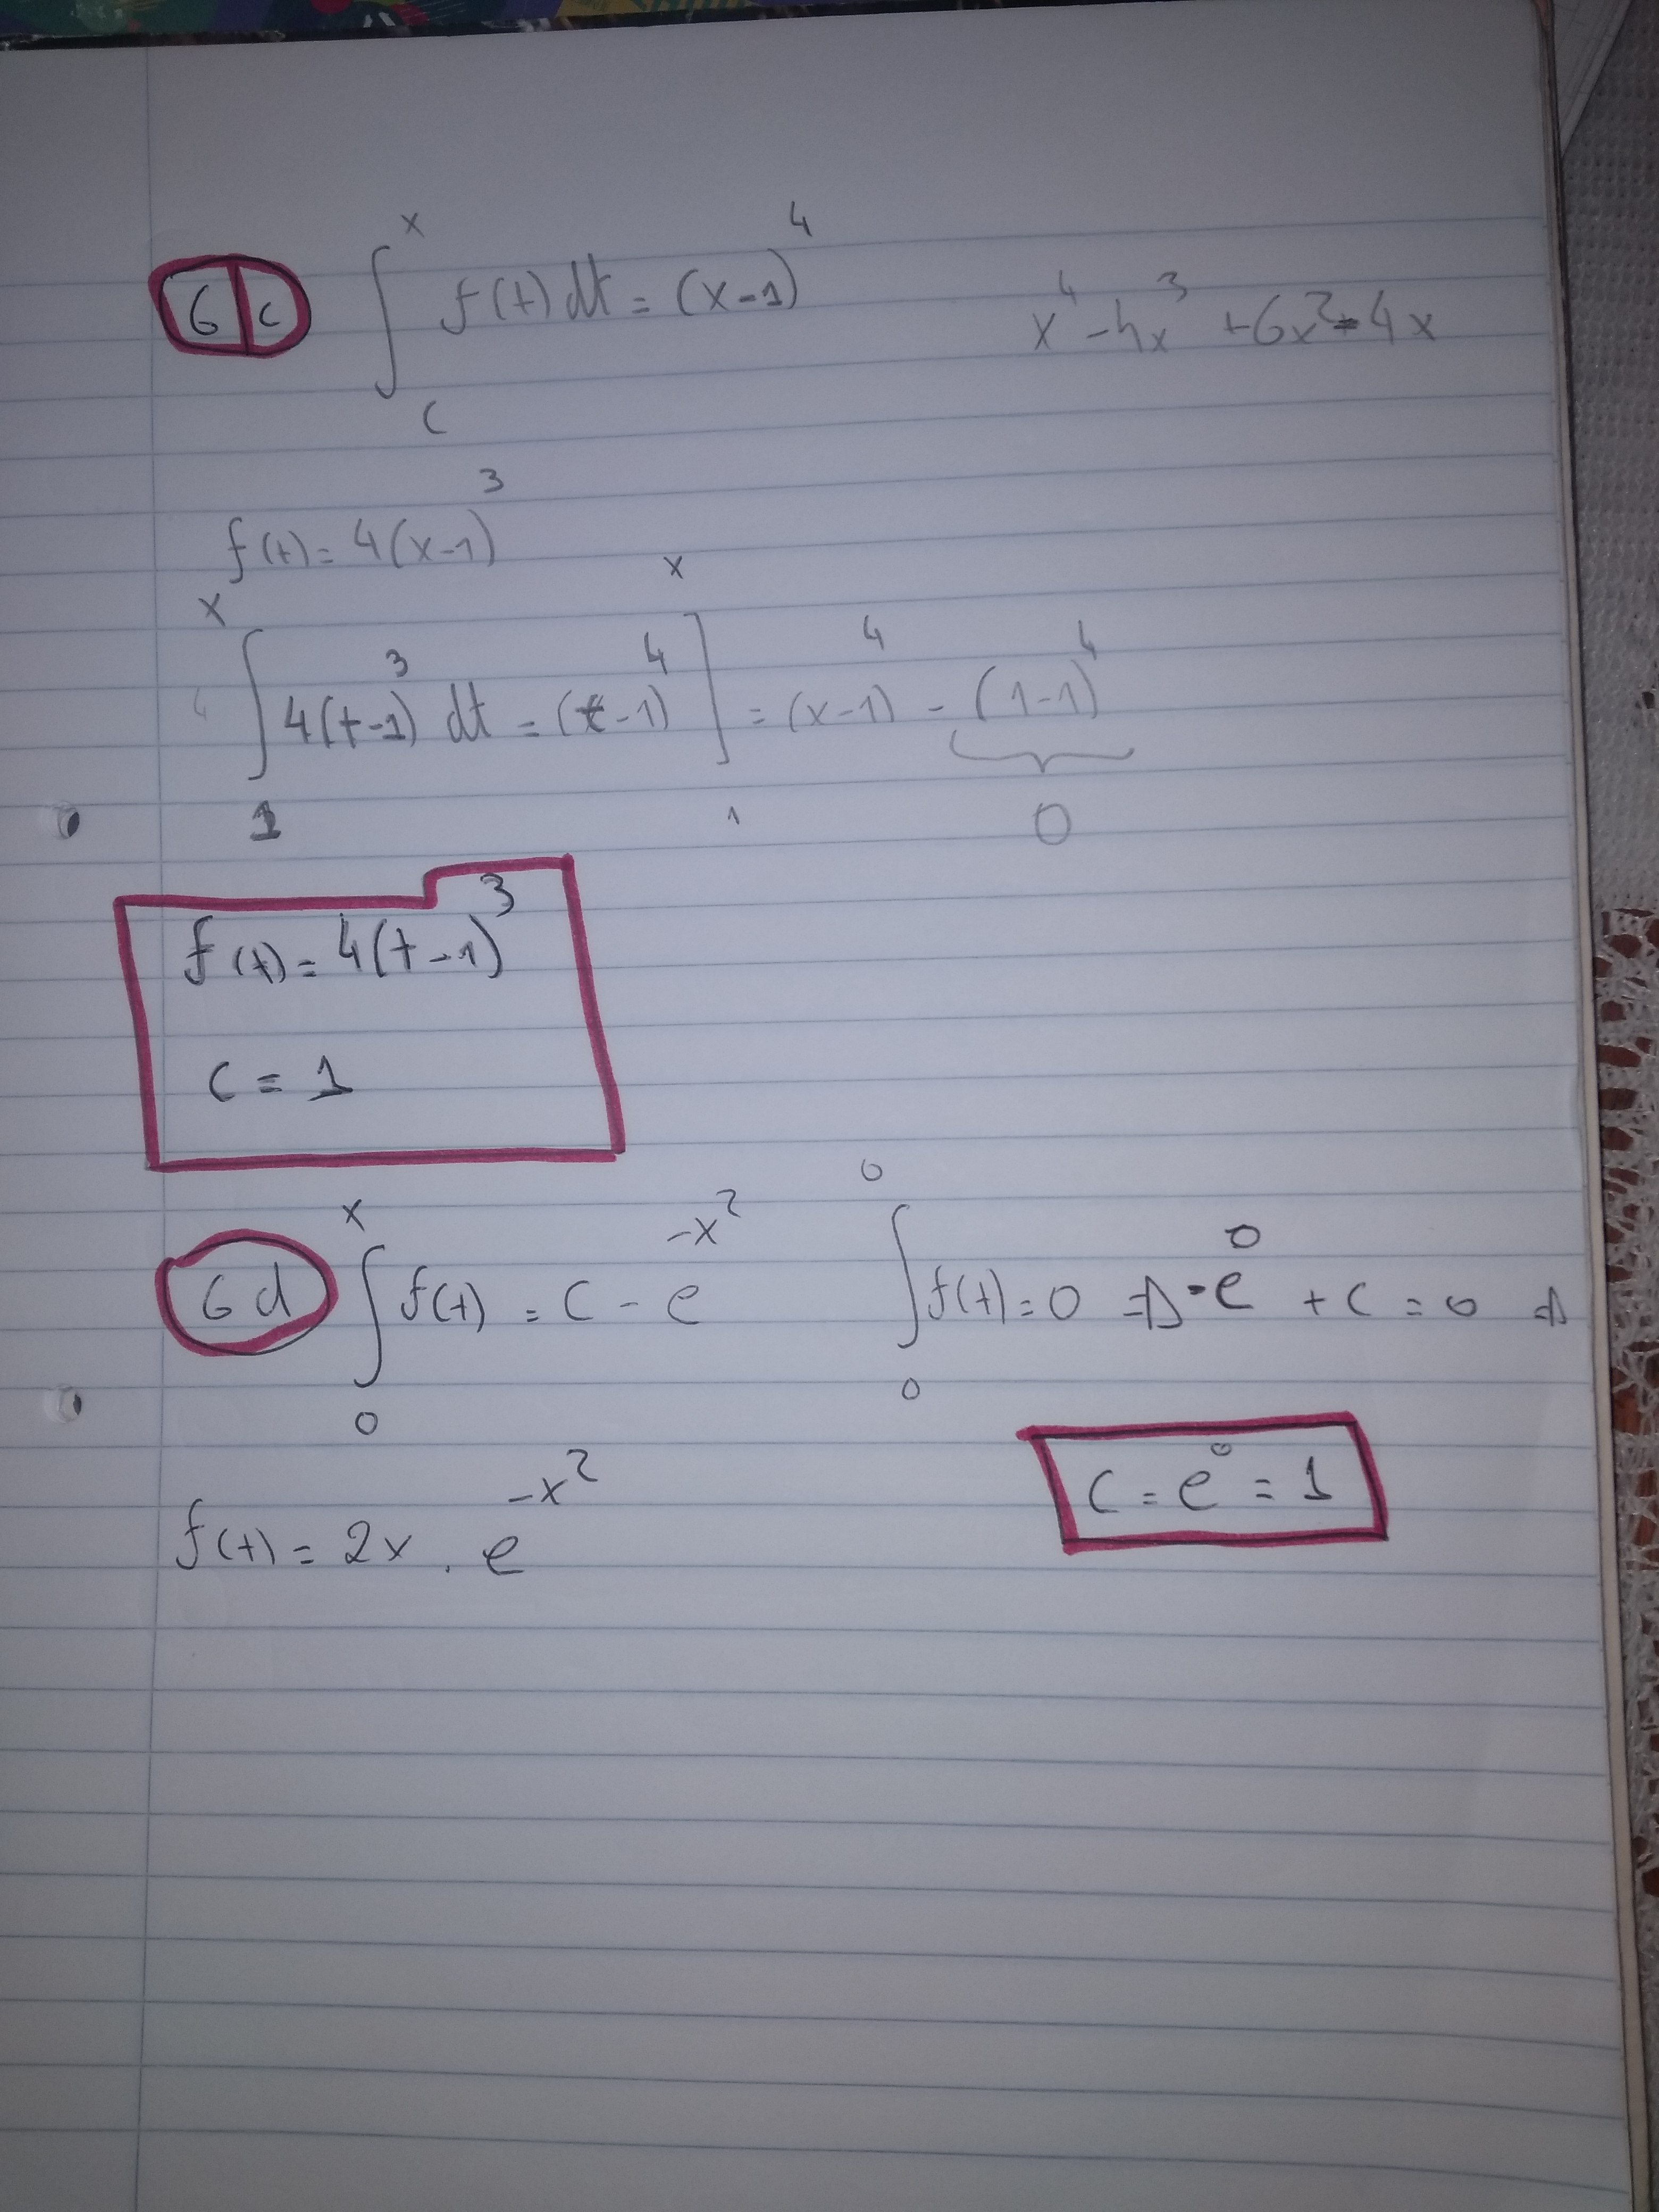 6 c ∫_c^x f(t) dt = (x-1)^4 x^4 - 4x^3 + 6x^2 - 4x
f(t) = 4(x-1)^3
∫_1^x 4(t-1)^3 dt = (t-1)^4 ]_1^x = (x-1)^4 - (1-1)^4
0
f(t) = 4(t-1)^3
c = 1
6d ∫_0^x f(t) = c - e^{-x^2} ∫_0^0 f(t) = 0 ⇒ -e^0 + c = 0 ⇒
c = e^0 = 1
f(t) = 2x . e^{-x^2}